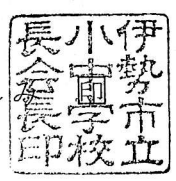 伊勢市立
小中学校
長会長印